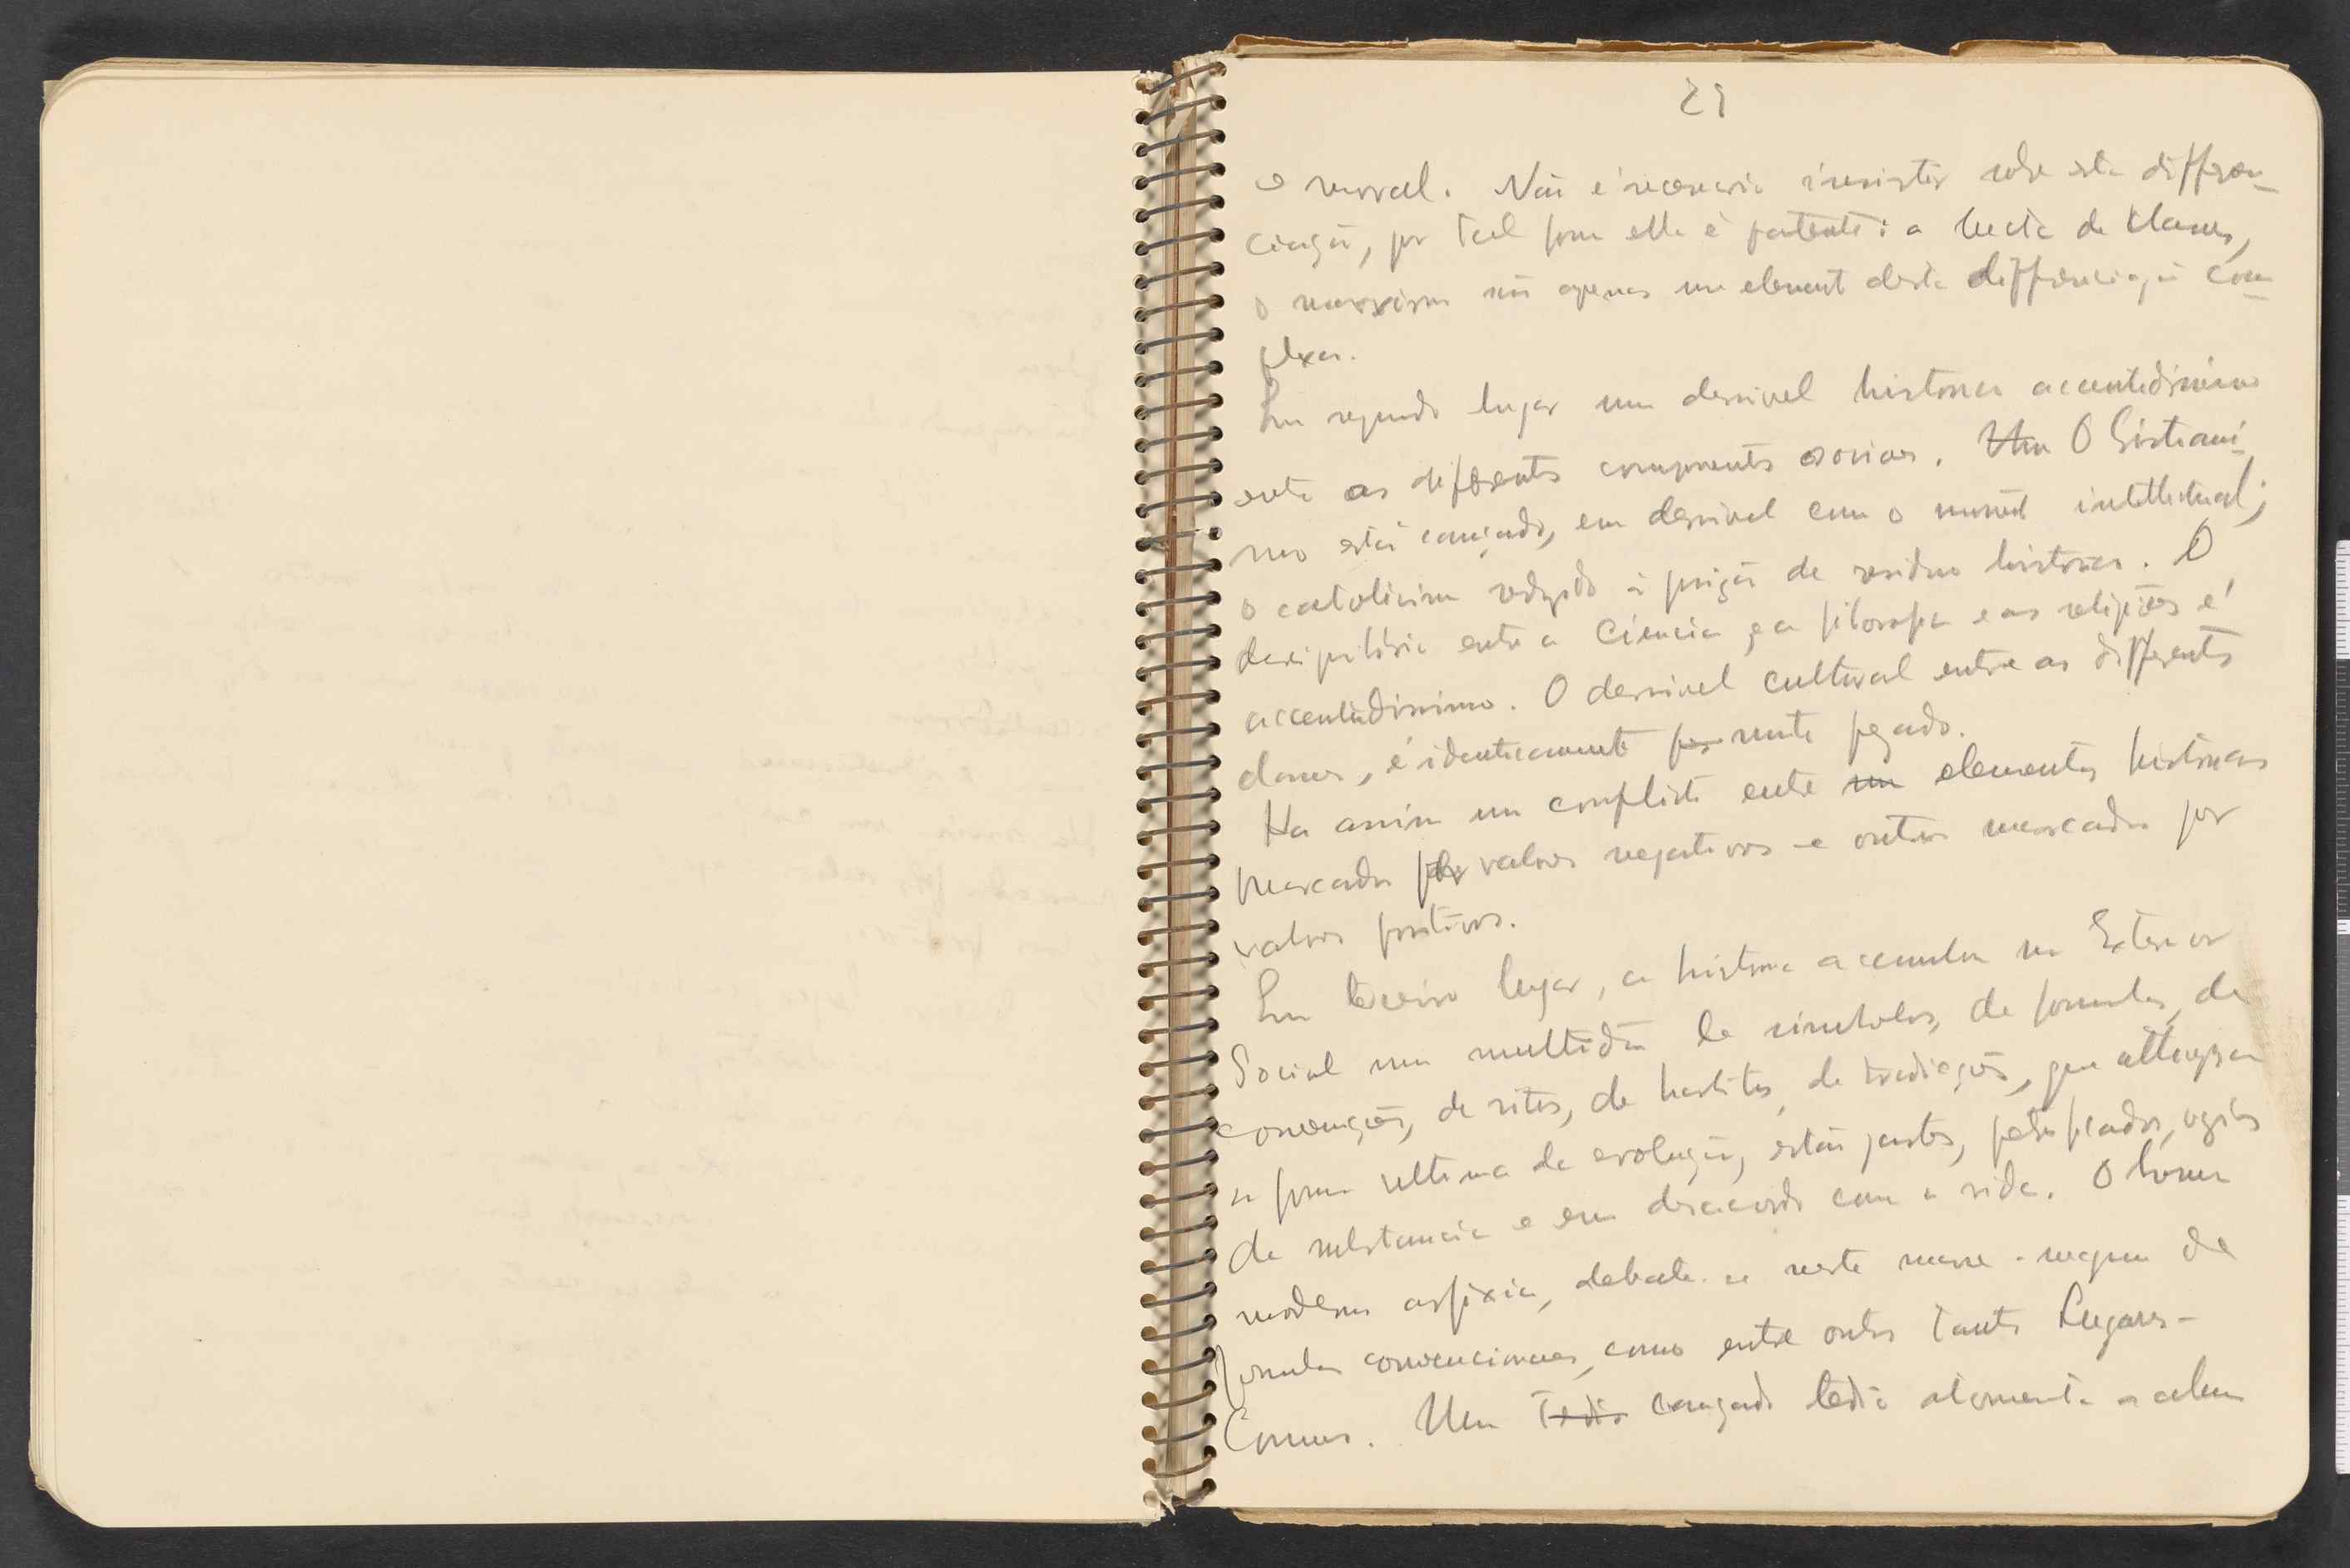 21
e moral. Não é necessario insistir sobre esta differen-
ciação, por tal forma ella é patente: a lucta de classes,
o marxismo são apenas um elemento desta differenciação com-
plexa.
Em segundo lugar um desnivel historico accentudissimo
entre as differentes componentes sociaes. Um O Cristianis-
mo está cançado, em desnivel com o mundo intellectual;
o catolicismo reduzido á posição de residuo historico. O
desiquilibrio entre a Ciencia, e a filosofia e as religiões é
accentudissimo. O desnivel cultural entre as differentes
classes, é identicamente muito pesado.
Ha assim um conflicto entre um elementos historicos
marcados por valores negativos e outros marcados por
valores positivos.
Em terceiro lugar, a historia accumulou no Exterior
Social uma multidão de simbolos, de formulas, de
convenções, de ritos, de habitos, de tradicções, que attingiram
a forma ultima da evolução, estão gastos, petrificados, vazios
de substancia e em desacordo com a vida. O homem
moderno asfixia, debate-se neste mare-magnum de
formulas convencionaes, como entre outros tantos Lugares-
Comuns. Um Tedio cançado tedio atormenta a alma